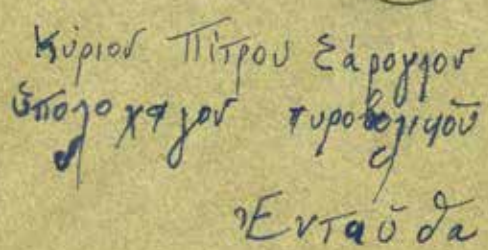 Κύριον Πίτρου Σάρογλον
ὑπολοχαγον πυροβολικοῦ
Ἐνταῦθα